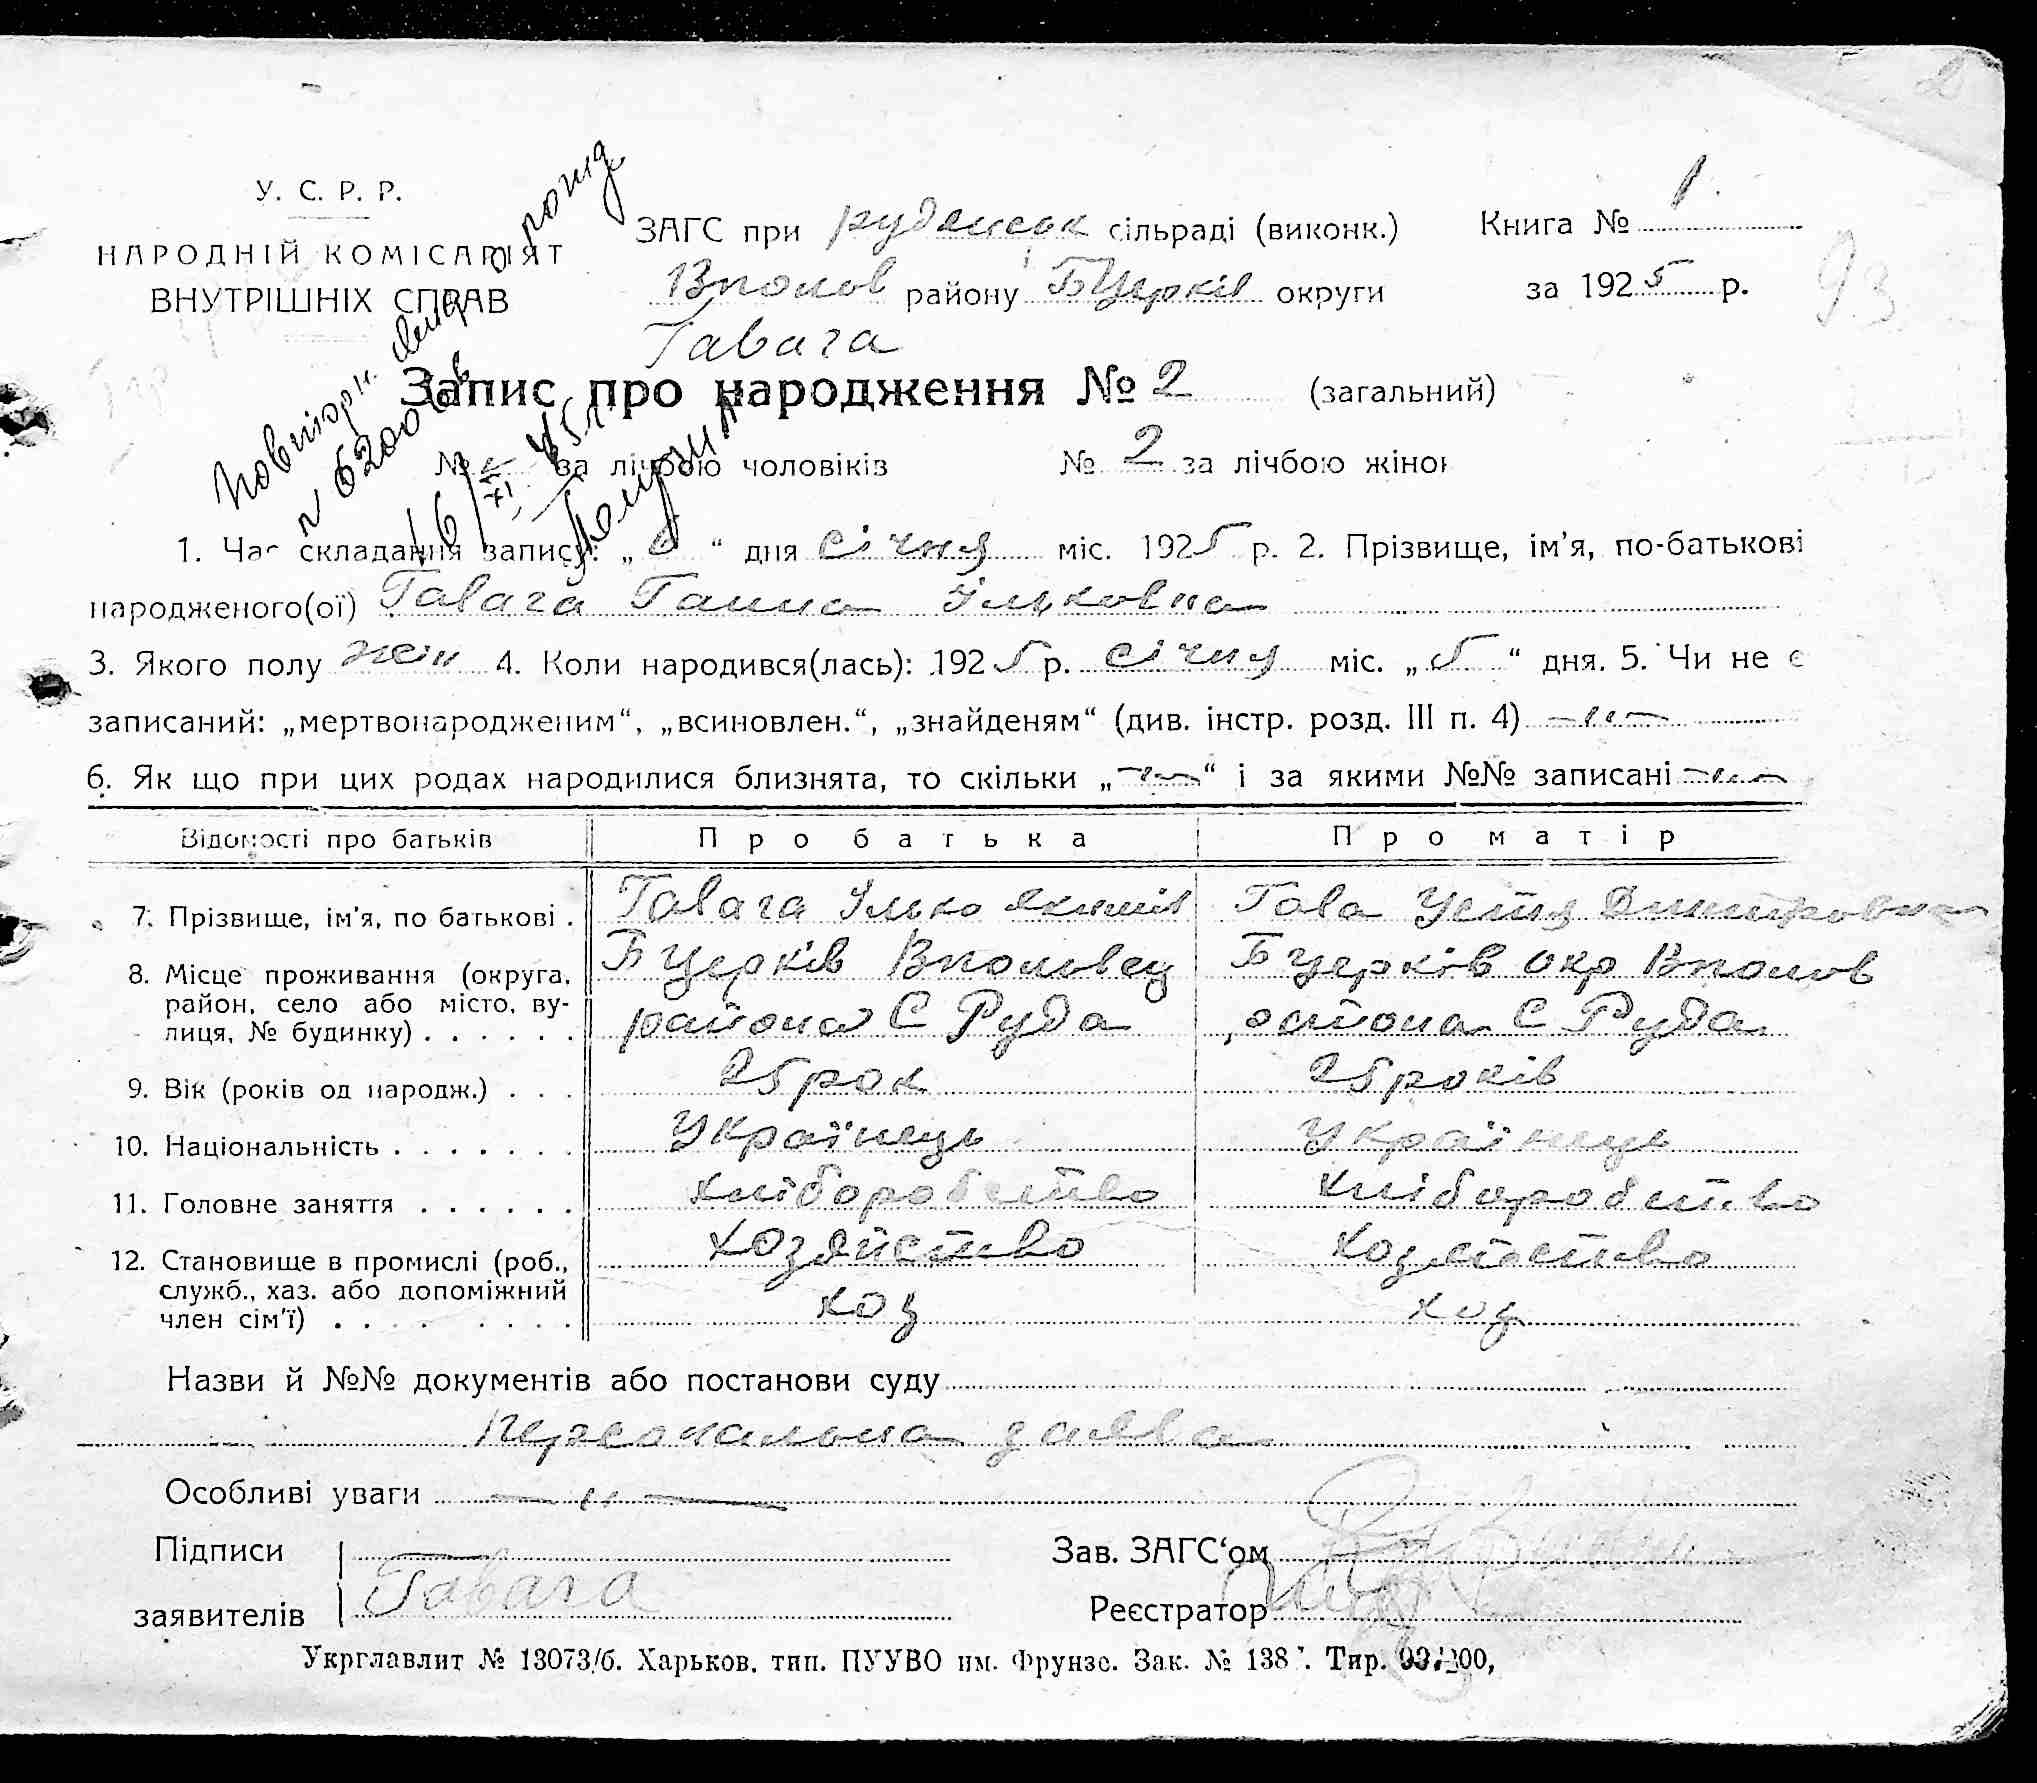 У. С. Р. Р.
НАРОДНІЙ КОМІСАРІЯТ
ВНУТРІШНІХ СПРАВ
ЗАГС при руденськ сільраді (виконк.)
Вполов района Бцерків округи
Книга № 1.
за 1925 р.
93
Гавага
Запис про народження № 2 (загальний)
№ за лічбою чоловіків № 2 за лічбою жінок
1. Час складання запису: „6“ дня січня міс. 1925 р. 2. Прізвище, ім’я, по-батькові
народженого(ої) Гавага Ганна Ільковна
3. Якого полу жін 4. Коли народився(лась): 1925 р. січня міс. „5“ дня. 5. Чи не є
записаний: „мертвонародженим“, „всиновлен.“, „знайденям“ (див. інстр. розд. III п. 4) —„—
6. Як що при цих родах народилися близнята, то скільки „—„—“ і за якими №№ записані —„—
Відомості про батьків Про батька Про матір
7. Прізвище, ім’я, по батькові . Гавага Ілько Якимів Гава Устя Дмитровна
8. Місце проживання (округа, Бцерків Вполовец Бцерків окр Вполов
район, село або місто, ву- района С Руда района С Руда
лиця, № будинку) . . . . . .
9. Вік (років од народж.) . . . 25 рок 25 років
10. Національність . . . . . . . Українець Українець
11. Головне заняття . . . . . . хліборобство хліборобство
12. Становище в промислі (роб., хозяйство хозяйство
служб., хаз. або допоміжний
член сім’ї) . . . . . . . . хоз хоз
Назви й №№ документів або постанови суду
персональна заява
Особливі уваги —„—
Підписи
заявителів Гавага
Зав. ЗАГС‘ом
Реєстратор
Укрглавлит № 13073/б. Харьков. тип. ПУУВО им. Фрунзе. Зак. № 138 . Тир.